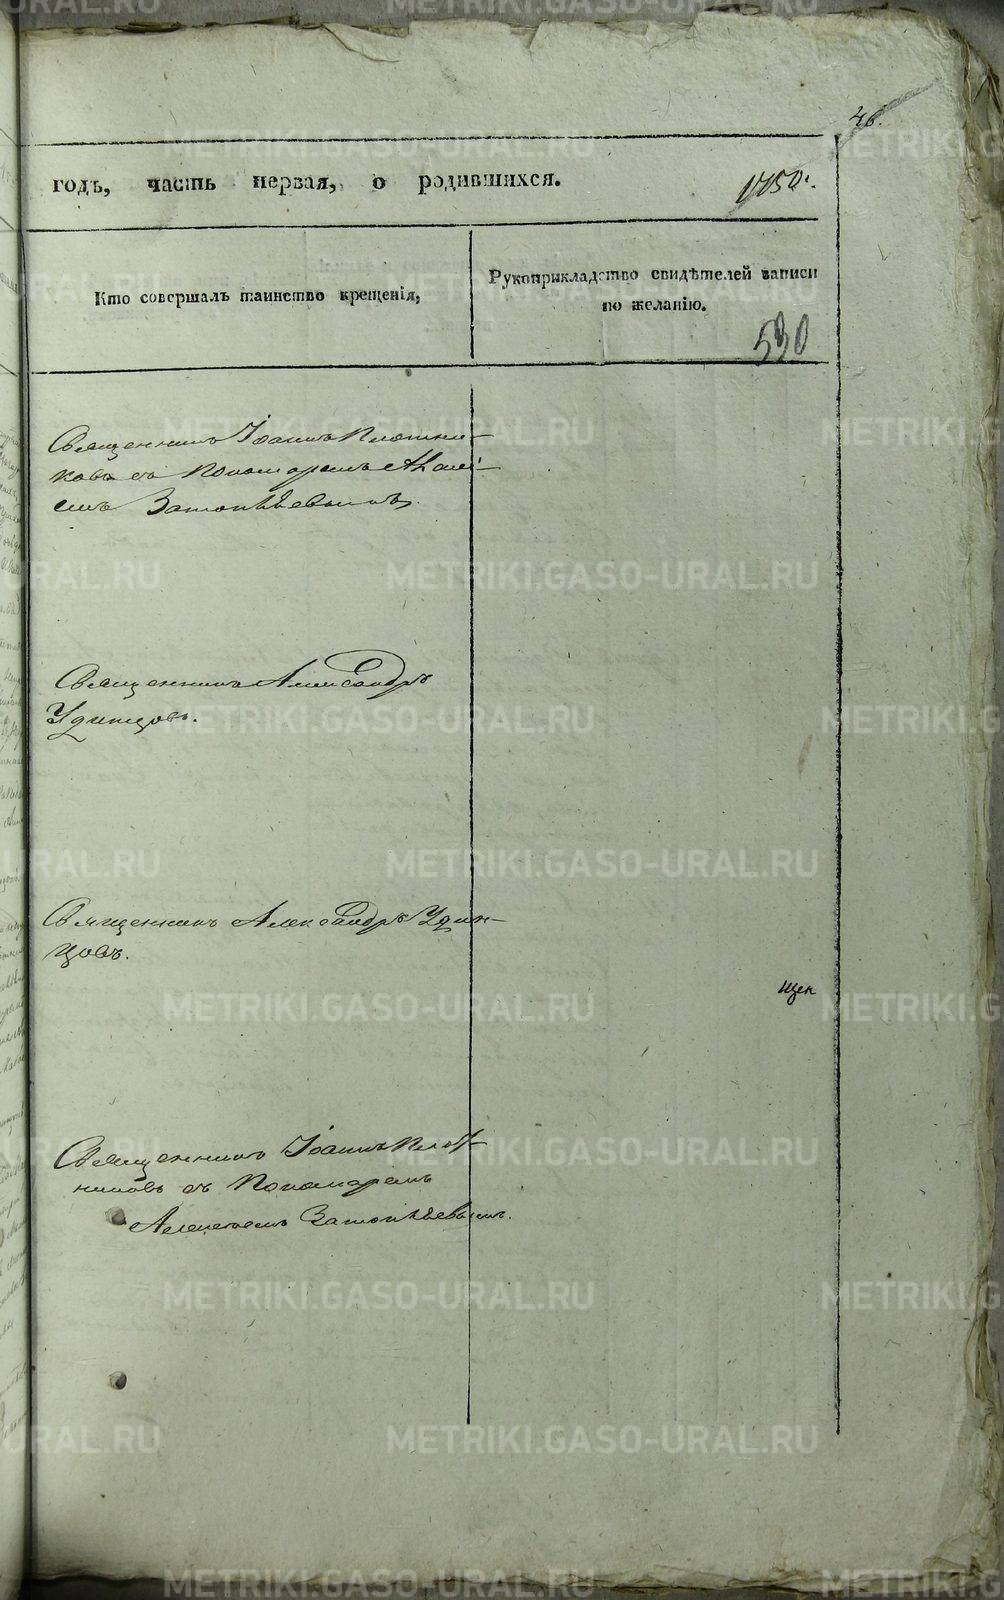 46.
годъ, часть первая, о родившихся.
1150.
Кто совершалъ таинство крещенія,
Рукоприкладство свидѣтелей записи
по желанію.
530
Священникъ Іоаннъ Плотни-
ковъ съ Пономаремъ
Затопляевымъ.
Священникъ Александръ
Удинцовъ.
Священникъ Александръ Удин-
цовъ.
щен
Священникъ Іоаннъ Плот-
никовъ съ Пономаремъ
Алексѣемъ Затопляевымъ.
METRIKI.GASO-URAL.RU